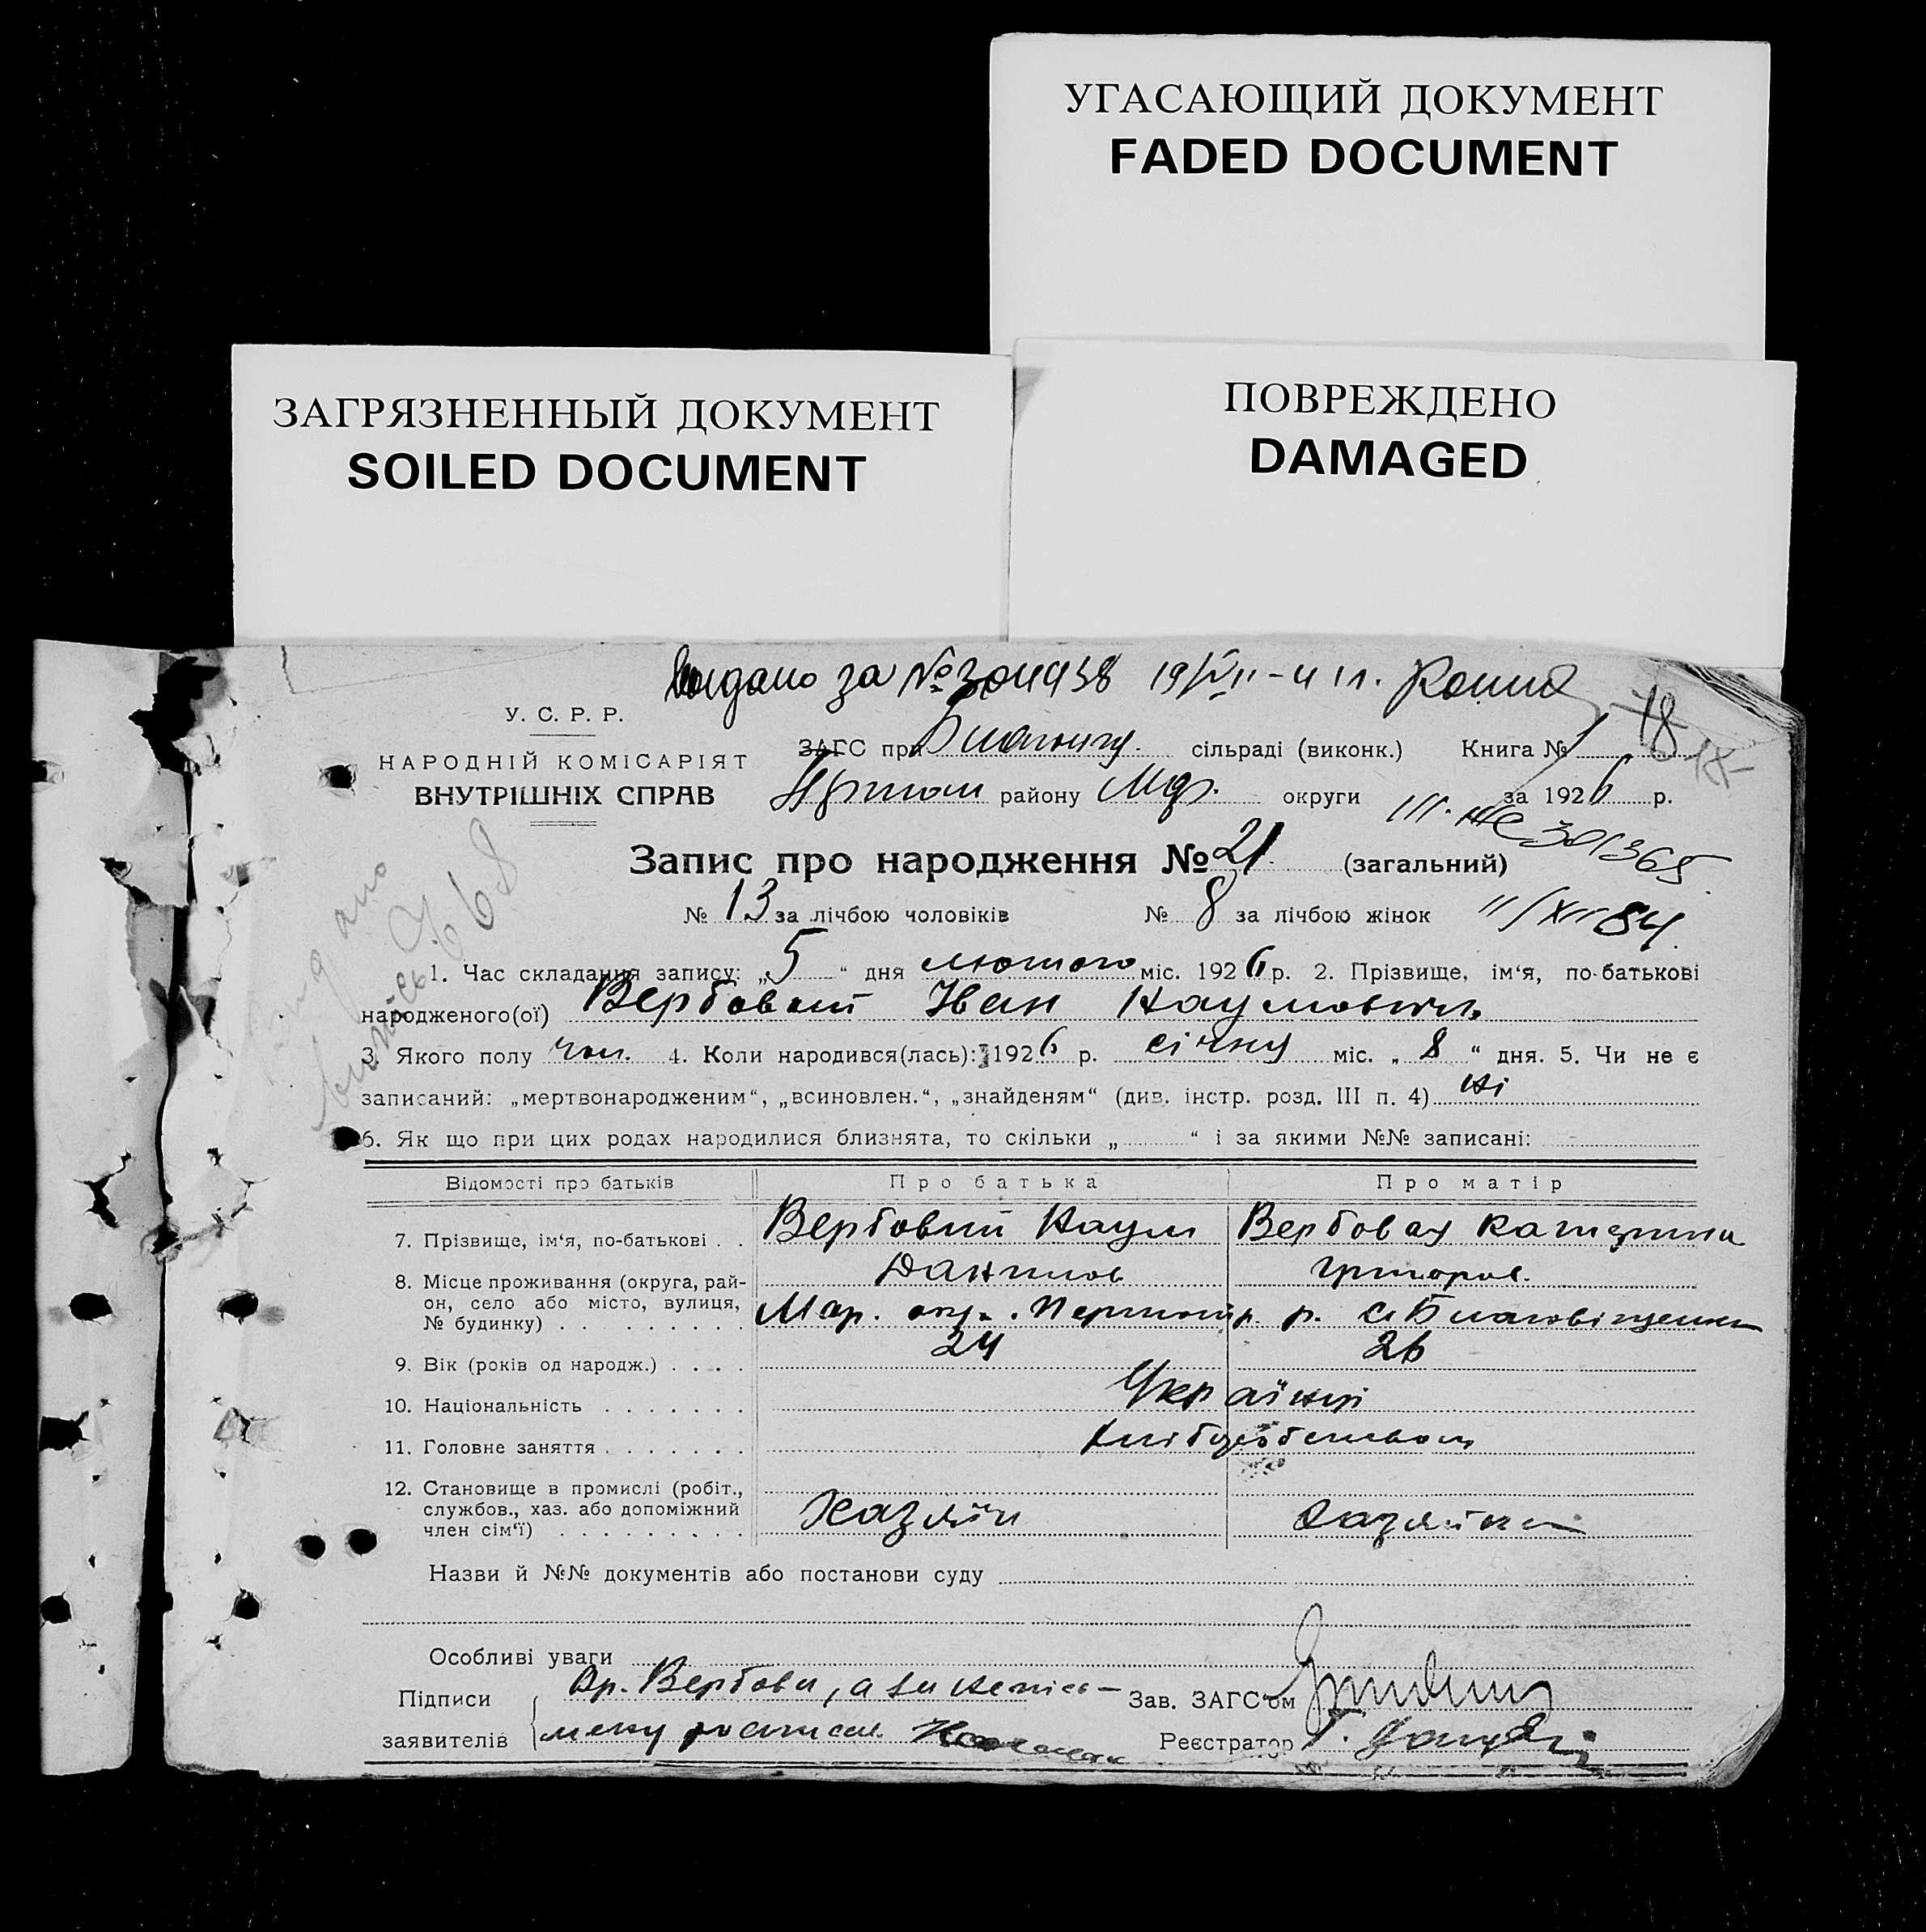 УГАСАЮЩИЙ ДОКУМЕНТ
FADED DOCUMENT
ЗАГРЯЗНЕННЫЙ ДОКУМЕНТ
SOILED DOCUMENT
ПОВРЕЖДЕНО
DAMAGED
за №
18
У. С. Р. Р.
НАРОДНІЙ КОМІСАРІЯТ
ВНУТРІШНІХ СПРАВ
ЗАГС при сільраді (виконк.) Книга № 1
району Мар. округи за 1926 р.
Запис про народження № 21. (загальний)
№ 13 за лічбою чоловіків № 8 за лічбою жінок
11/XII 84
1. Час складання запису: „5“ дня лютого міс. 1926 р. 2. Прізвище, ім‘я, по-батькові
народженого(ої) Вербовий Іван Наумович
3. Якого полу чол. 4. Коли народився(лась): 1926 р. січня міс. „8“ дня. 5. Чи не є
записаний: „мертвонародженим“, „всиновлен.“, „знайденям“ (див. інстр. розд. III п. 4) ні
6. Як що при цих родах народилися близнята, то скільки „ “ і за якими №№ записані:
Відомості про батьків Про батька Про матір
7. Прізвище, ім‘я, по-батькові . . Вербовий Наум Вербовая Катерина
Данилов Григоров.
8. Місце проживання (округа, рай-
он, село або місто, вулиця,
№ будинку) . . . . . . . . . Мар. окр. р. с. Благовіщенка
9. Вік (років од народж.) . . . . 24 26
10. Національність . . . . . . . Українці
11. Головне заняття . . . . . . . хліборобством
12. Становище в промислі (робіт.,
службов., хаз. або допоміжний
член сім‘ї) . . . . . . . . . Хазяїн Хазяйка
Назви й №№ документів або постанови суду
Особливі уваги
Підписи
заявителів
Зав. ЗАГС‘ом
Реєстратор